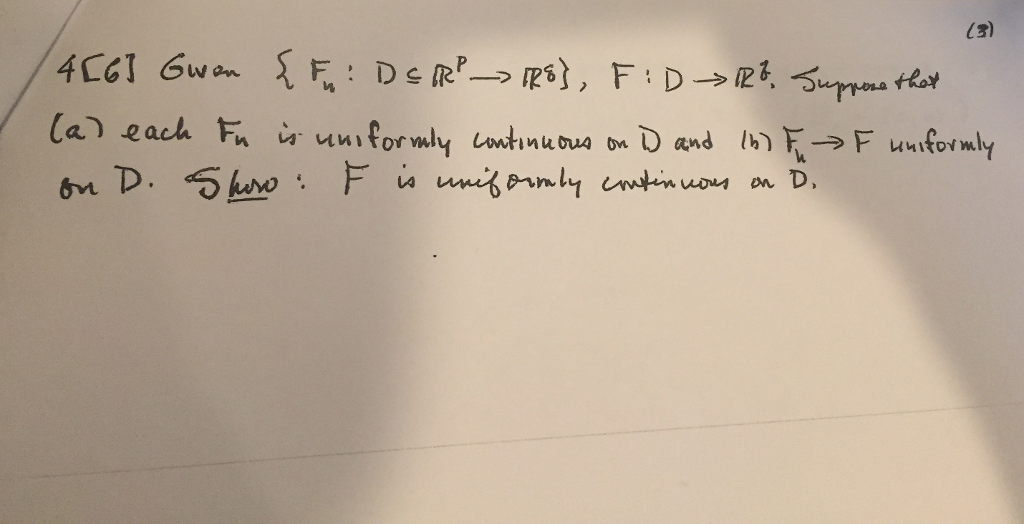 (3)
4[6] Given { Fₙ : D ⊆ ℝᵖ → ℝ^q }, F : D → ℝ^q. Suppose that
(a) each Fₙ is uniformly continuous on D and (b) Fₙ → F uniformly
on D. Show : F is uniformly continuous on D.